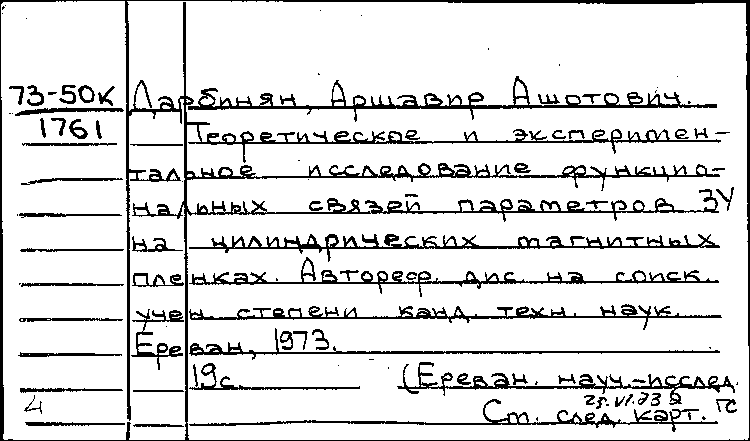 73-50к Дарбинян, Аршавир Ашотович.
1761 Теоретическое и эксперимен-
тальное исследование функцио-
нальных связей параметров ЗУ
на цилиндрических магнитных
пленках. Автореф. дис. на соиск.
учен. степени канд. техн. наук.
Ереван, 1973.
19с. (Ереван. науч.-исслед.
4 Ст. след. карт. ГС